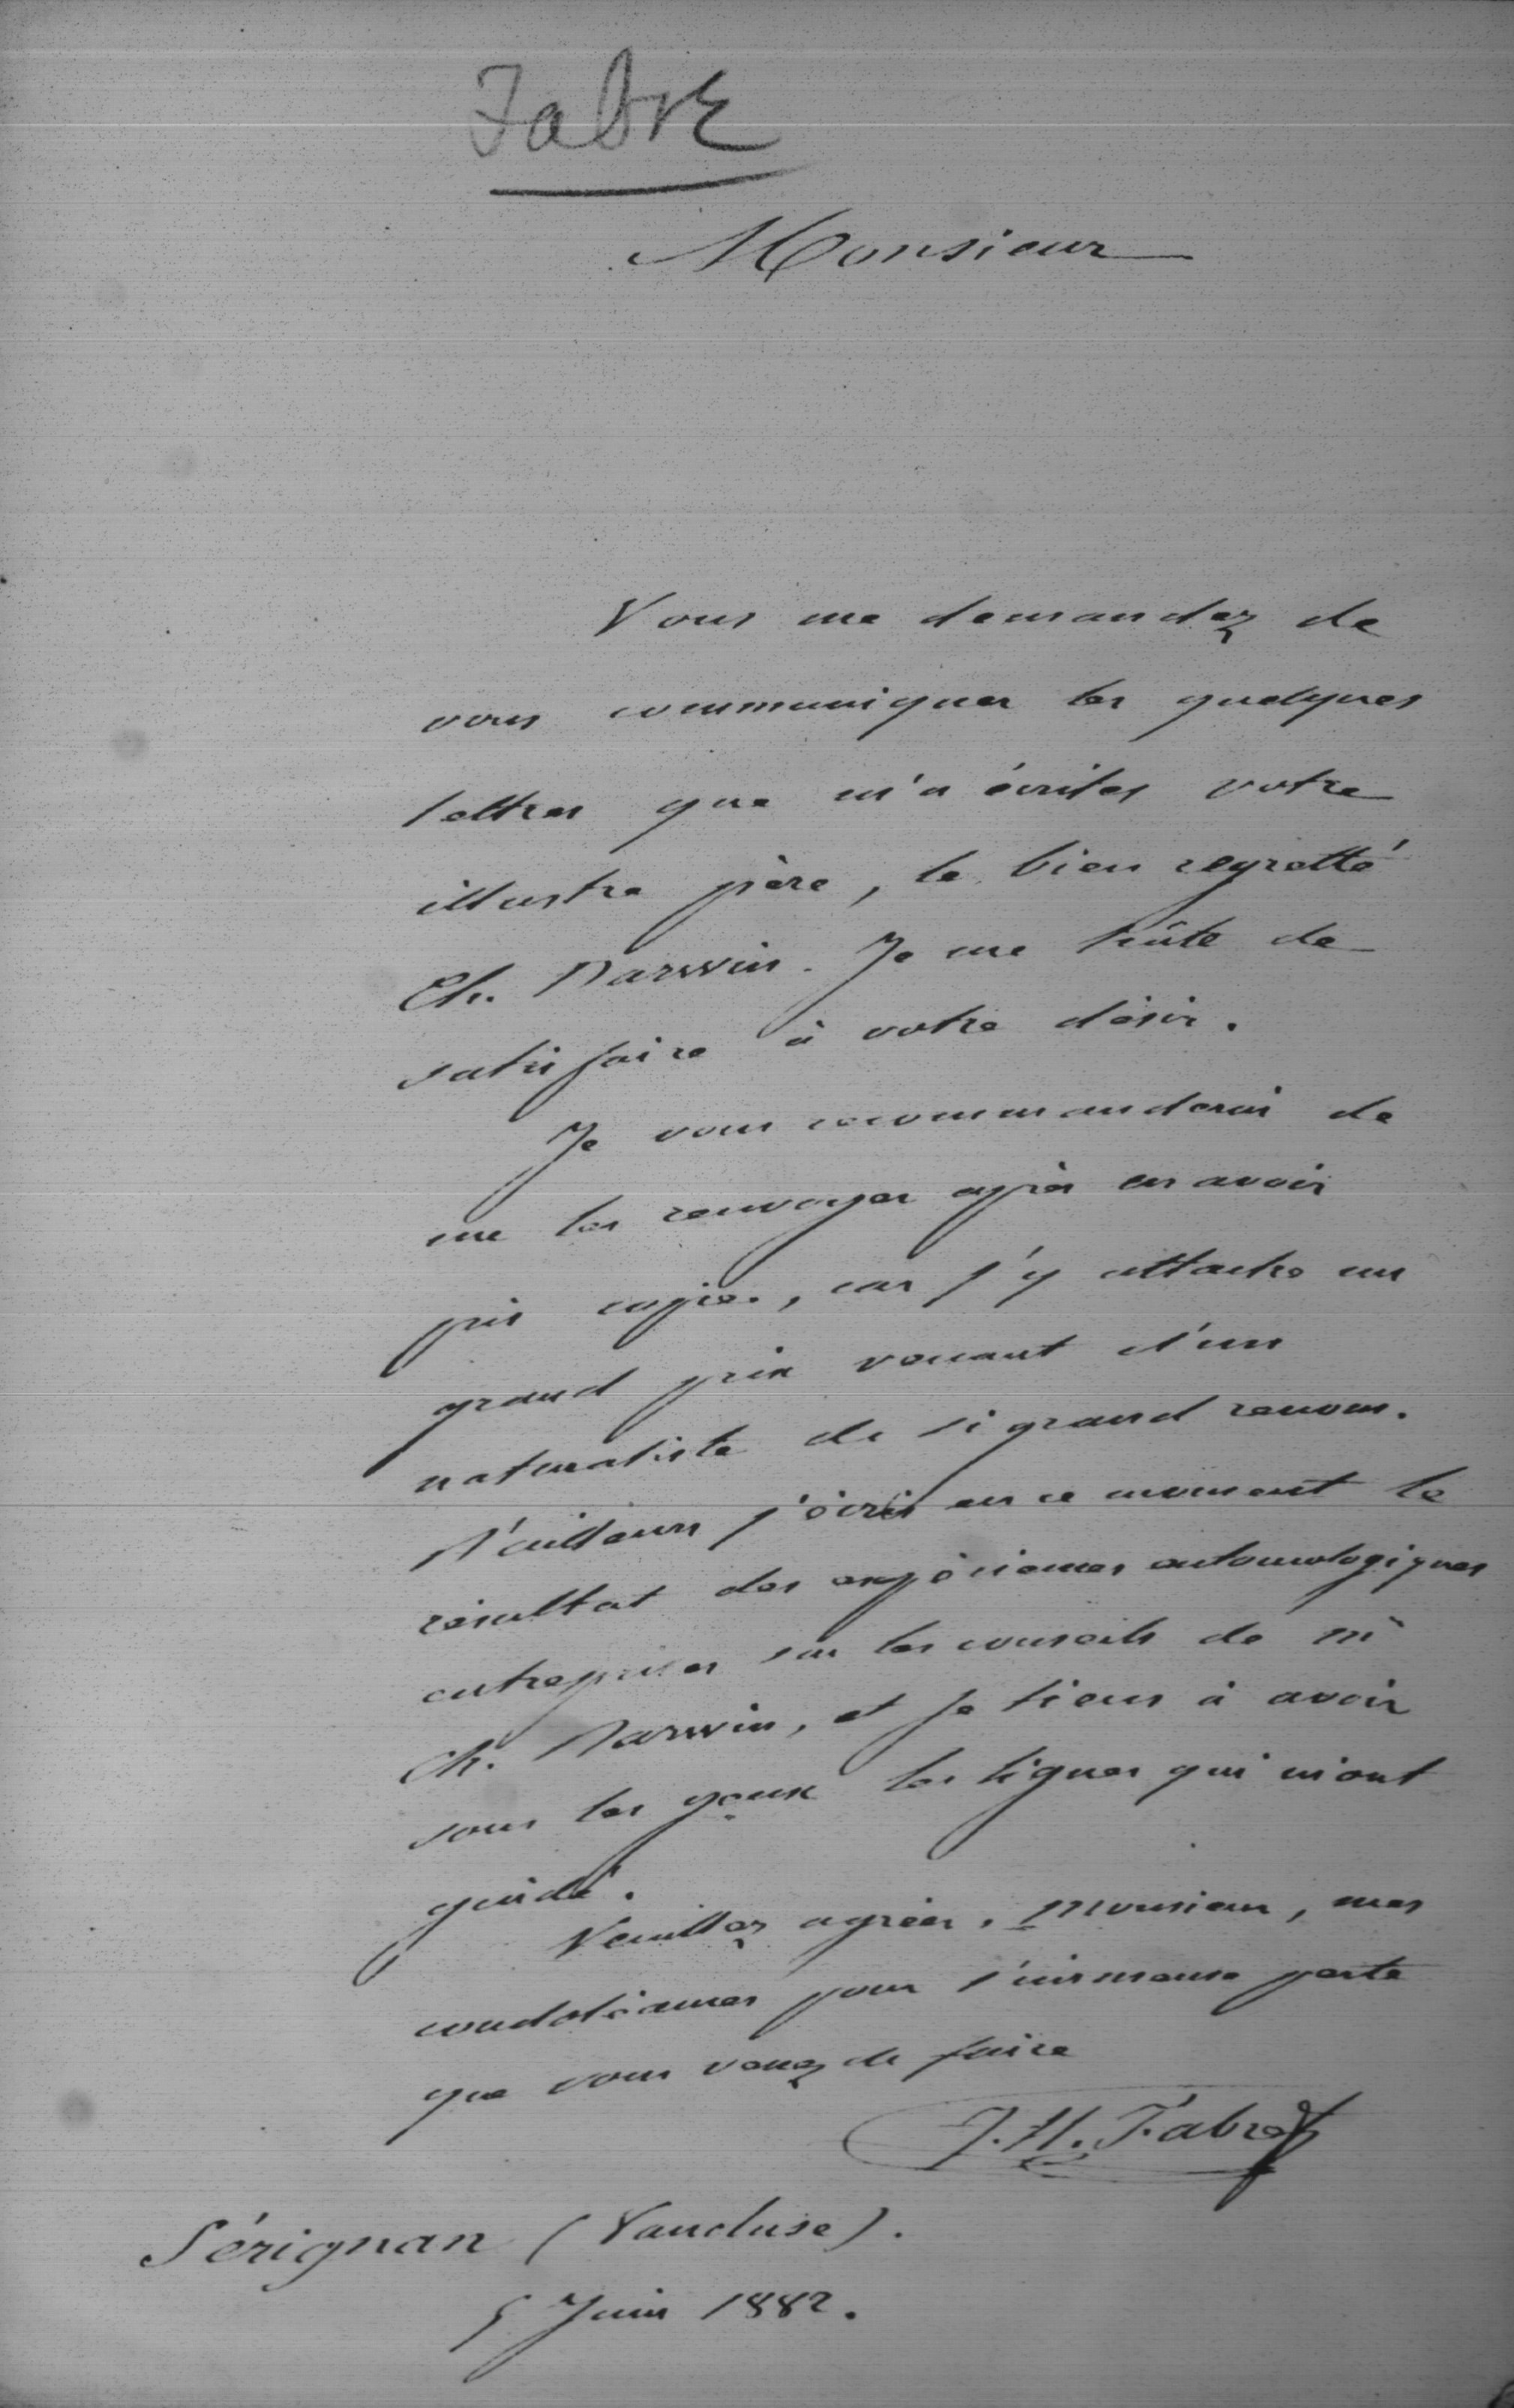 Fabre
Monsieur
Vous me demandez de
vous communiquer les quelques
lettres que m'a écrites votre
illustre père, le bien regretté
Ch. Darwin. Je me hâte de
satisfaire à votre désir.
Je vous recommanderai de
me les renvoyer après en avoir
pris copie, car j'y attache un
grand prix venant d'un
naturaliste de si grand renom.
D'ailleurs j'écris en ce moment le
résultat des expériences entomologiques
entreprises sur les conseils de Mr
Ch. Darwin, et je tiens à avoir
sous les yeux les lignes qui m'ont
guidé.
Veuillez agréer, Monsieur, mes
condoléances pour l'immense perte
que vous venez de faire
J.H. Fabre
Sérignan (Vaucluse).
5 Juin 1882.